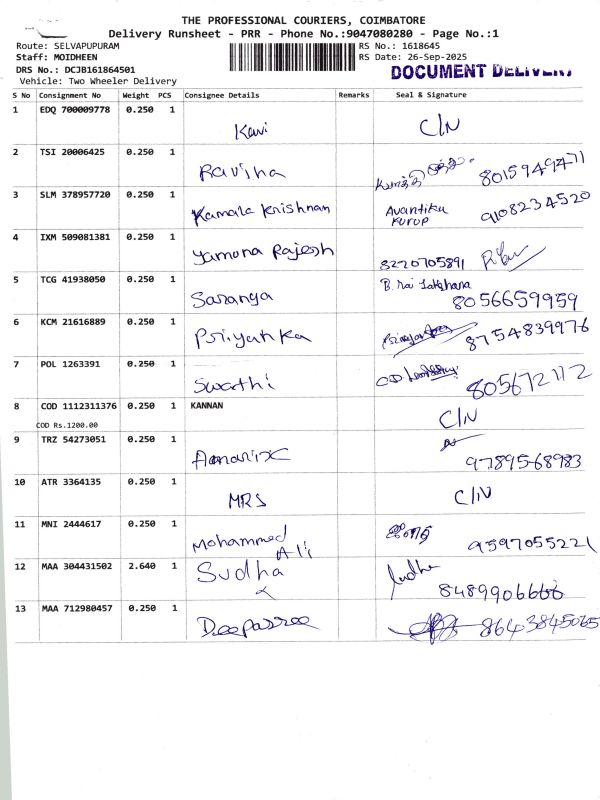 THE PROFESSIONAL COURIERS, COIMBATORE
Delivery Runsheet - PRR - Phone No.:9047080280 - Page No.:1
Route: SELVAPUPURAM RS No.: 1618645
Staff: MOIDHEEN RS Date: 26-Sep-2025
DRS No.: DCJB161864501 DOCUMENT DELIVERY
Vehicle: Two Wheeler Delivery
S No Consignment No Weight PCS Consignee Details Remarks Seal & Signature
1 EDQ 700009778 0.250 1 Kavi C/N
2 TSI 20006425 0.250 1 Ravina 8015949471
3 SLM 378957720 0.250 1 Kamala Krishnan Avantika Kurup 9108234520
4 IXM 509081381 0.250 1 Yamuna Rajesh 8220705891
5 TCG 41938050 0.250 1 Saranya B. Rai Lakshana 8056659959
6 KCM 21616889 0.250 1 Priyanka 8754839976
7 POL 1263391 0.250 1 Swathi 805672112
8 COD 1112311376 0.250 1 KANNAN C/N
COD Rs.1200.00
9 TRZ 54273051 0.250 1 9789568983
10 ATR 3364135 0.250 1 MRS C/N
11 MNI 2444617 0.250 1 Mohammed Ali 9597055221
12 MAA 304431502 2.640 1 Sudha Sudha 8489906666
13 MAA 712980457 0.250 1 Deepasree 8643845065